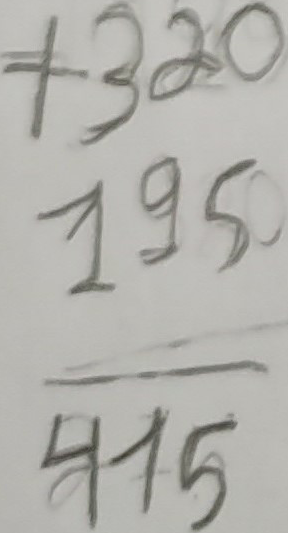 +320
195
415